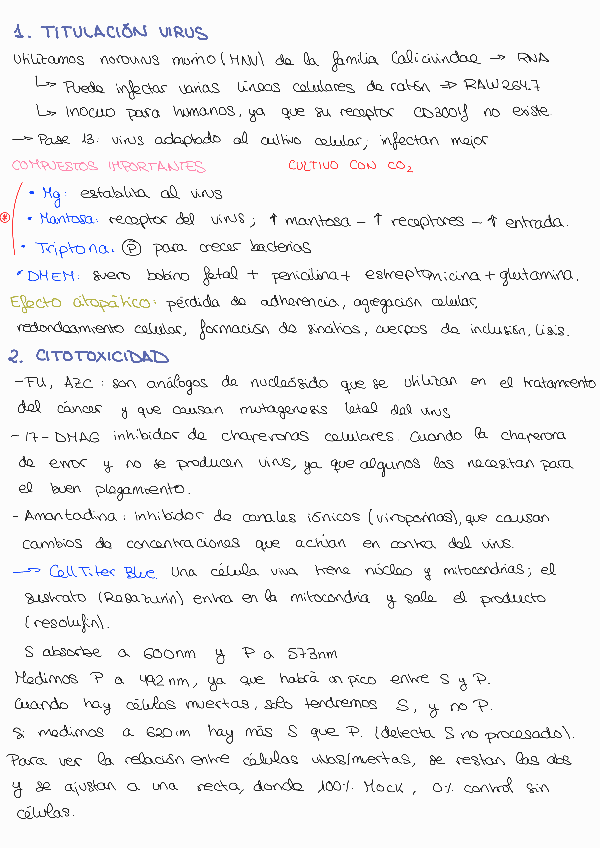 1. TITULACIÓN VIRUS
Utilizamos norovirus murino (MNV) de la familia Caliciviridae → RNA
↳ Puede infectar varias líneas celulares de ratón ⇒ RAW 264.7
↳ Inocuo para humanos, ya que su receptor CD300lf no existe
→ Pase 13: virus adaptado al cultivo celular, infectan mejor
COMPUESTOS IMPORTANTES CULTIVO CON CO₂
• Mg: estabiliza al virus
* • Manosa: receptor del virus; ↑ manosa - ↑ receptores - ↑ entrada.
• Triptona: Ⓟ para crecer bacterias
• DMEM: suero bobino fetal + penicilina + estreptomicina + glutamina.
Efecto citopático: pérdida de adherencia, agregación celular,
redondeamiento celular, formación de sincitios, cuerpos de inclusión, lisis.
2. CITOTOXICIDAD
- FU, AZC: son análogos de nucleósido que se utilizan en el tratamiento
del cáncer y que causan mutagenesis letal del virus
- 17-DMAG inhibidor de chaperonas celulares. Cuando la chaperona
da error y no se producen virus, ya que algunos las necesitan para
el buen plegamiento.
- Amantadina: inhibidor de canales iónicos (viroporinas), que causan
cambios de concentraciones que actúan en contra del virus.
→ CellTiter Blue. Una célula viva tiene núcleo y mitocondrias; el
sustrato (Resazurin) entra en la mitocondria y sale el producto
(resorufin).
S absorbe a 600nm y P a 573nm
Medimos P a 492nm, ya que habrá un pico entre S y P.
Cuando hay células muertas, solo tendremos S, y no P.
Si medimos a 620nm hay más S que P. (detecta S no procesado).
Para ver la relación entre células vivas/muertas, se restan las abs
y se ajustan a una recta, donde 100% Mock, 0% control sin
células.